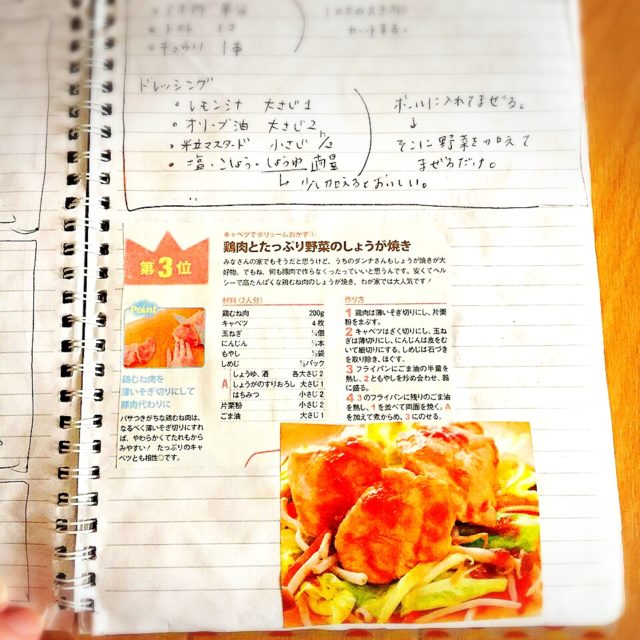 ・トマト 1コ
・キュウリ 1本
カットする。
ドレッシング
・レモン汁 大さじ1
・オリーブ油 大さじ2
・粒マスタード 小さじ1/2
・塩・こしょう・しょうゆ 適量
↳ 少し加えるとおいしい。
ボールに入れてまぜる。
↓
そこに野菜を加えて
まぜるだけ。
第3位
キャベツでボリュームおかず!
鶏肉とたっぷり野菜のしょうが焼き
みなさんの家でもそうだと思うけど、うちのダンナさんもしょうが焼きが大
好物。でもね、何も豚肉で作らなくったっていいと思うんです。安くてヘル
シーで高たんぱくな鶏むね肉のしょうが焼き、わが家では大人気です!
Point
鶏むね肉を
薄いそぎ切りにして
豚肉代わりに
パサつきがちな鶏むね肉は、
なるべく薄いそぎ切りにすれ
ば、やわらかくてたれもから
みやすい! たっぷりのキャ
ベツとも相性◎です。
材料(2人分)
鶏むね肉 200g
キャベツ 4枚
玉ねぎ 個
にんじん 本
もやし 袋
しめじ パック
A
しょうゆ、酒 各大さじ2
しょうがのすりおろし 大さじ1
はちみつ 小さじ2
片栗粉 小さじ2
ごま油 大さじ1
作り方
1 鶏肉は薄いそぎ切りにし、片栗
粉をまぶす。
2 キャベツはざく切りにし、玉ね
ぎは薄切りにし、にんじんは皮をむ
いて細切りにする。しめじは石づき
を取り除き、ほぐす。
3 フライパンにごま油の半量を
熱し、2ともやしを炒め合わせ、器
に盛る。
4 3のフライパンに残りのごま油
を熱し、1を並べて両面を焼く。A
を加えて煮からめ、3にのせる。